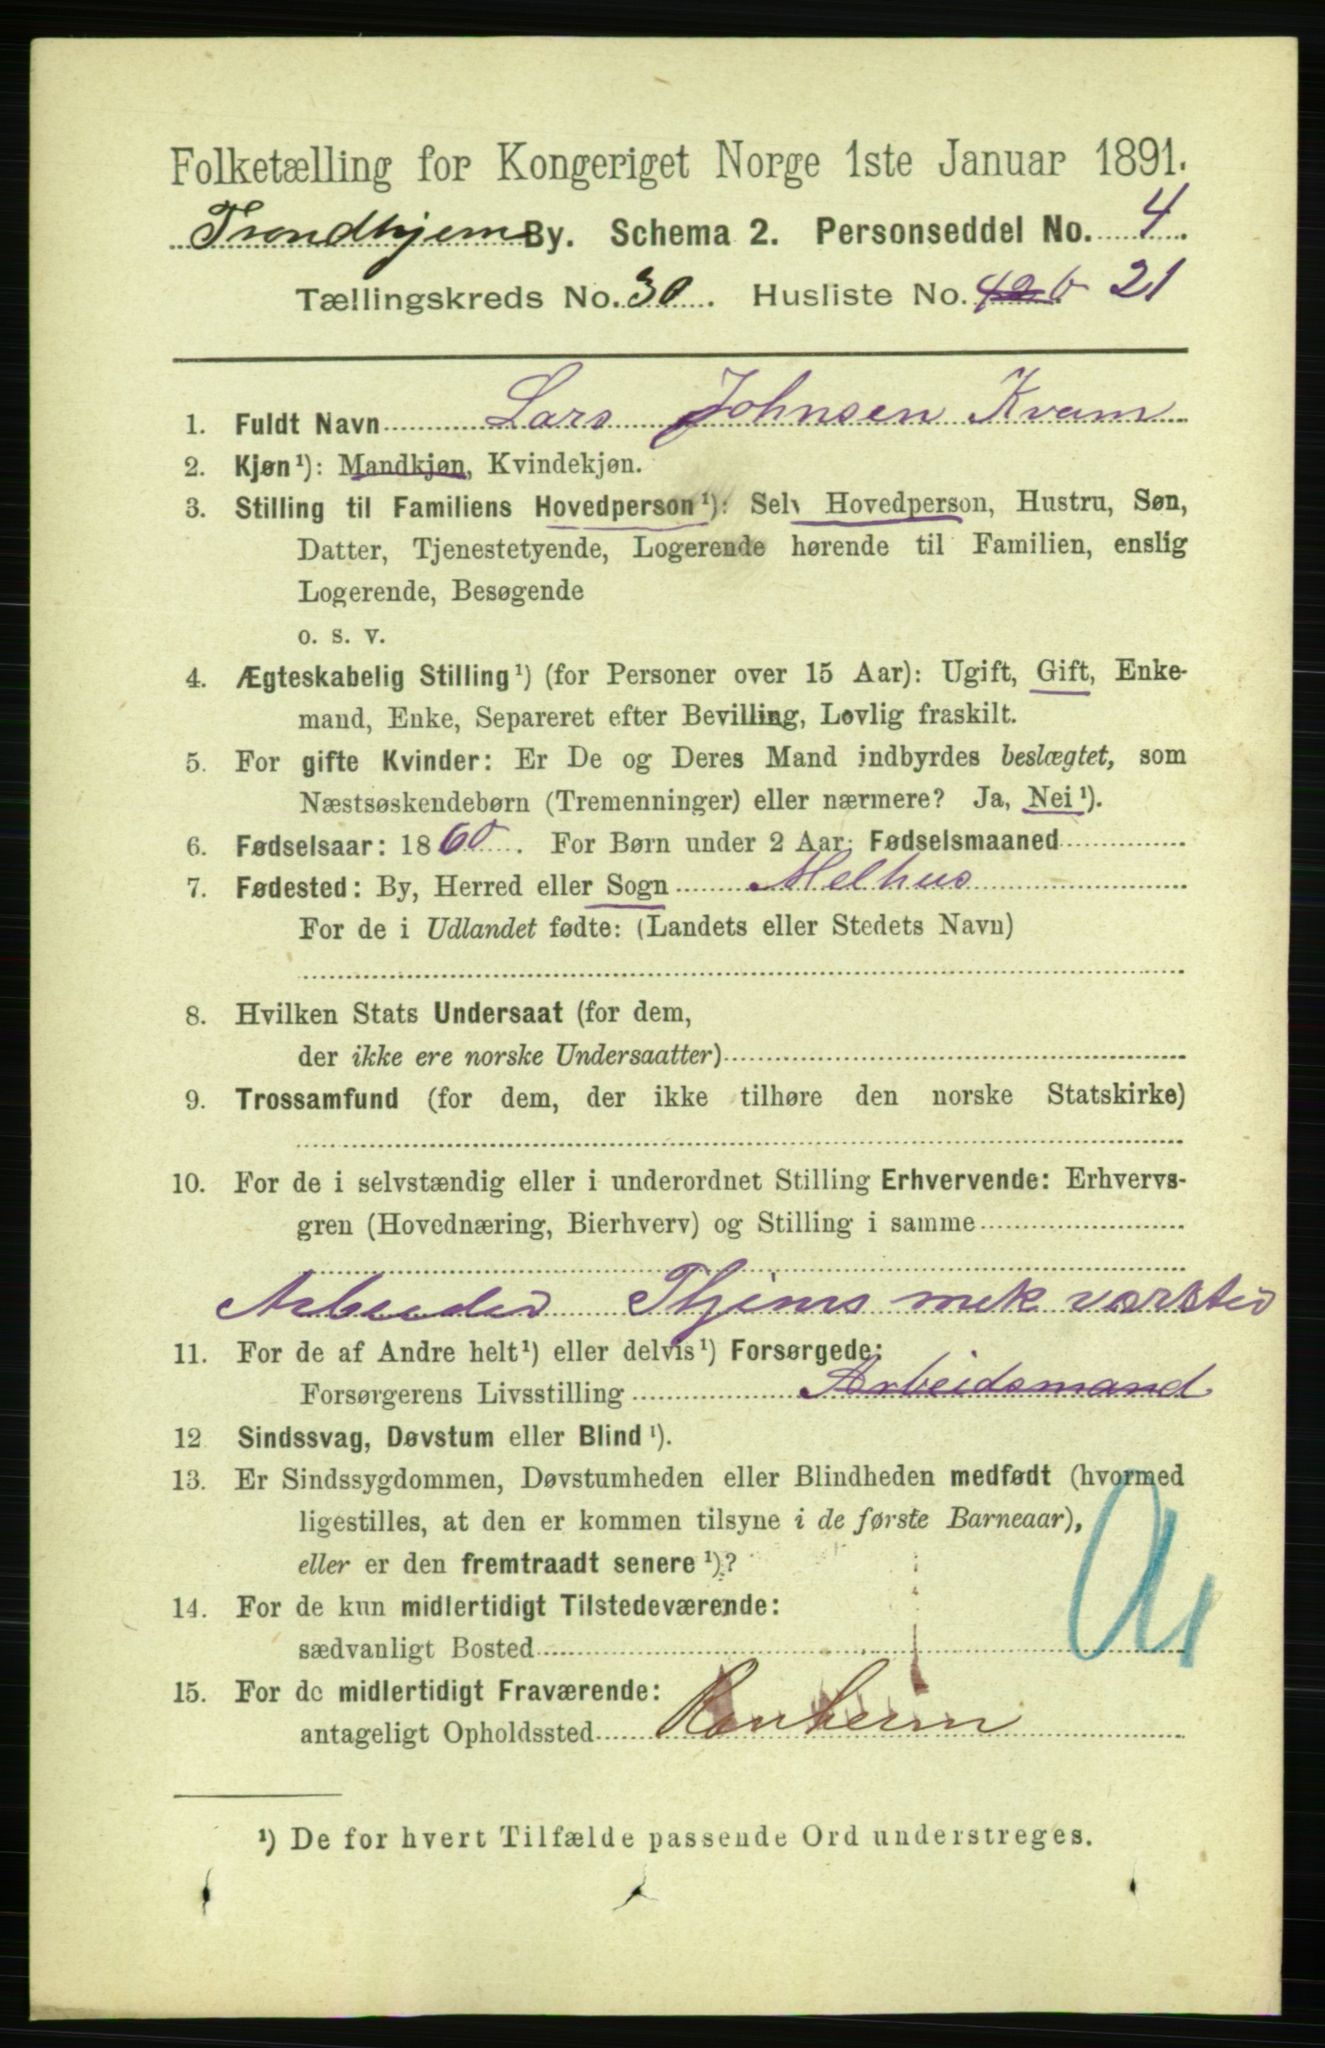 Folketælling for Kongeriget Norge 1ste Januar 1891.
Trondhjem By. Schema 2. Personseddel No. 4.
Tællingskreds No. 30. Husliste No. 42 b 21
1. Fuldt Navn Lars Johnsen Kvam
2. Kjøn¹): Mandkjøn, Kvindekjøn.
3. Stilling til Familiens Hovedperson¹): Selv Hovedperson, Hustru, Søn,
Datter, Tjenestetyende, Logerende hørende til Familien, enslig
Logerende, Besøgende
o. s. v.
4. Ægteskabelig Stilling¹) (for Personer over 15 Aar): Ugift, Gift, Enke-
mand, Enke, Separeret efter Bevilling, Lovlig fraskilt.
5. For gifte Kvinder: Er De og Deres Mand indbyrdes beslægtet, som
Næstsøskendebørn (Tremenninger) eller nærmere? Ja, Nei¹).
6. Fødselsaar: 1860. For Børn under 2 Aar: Fødselsmaaned
7. Fødested: By, Herred eller Sogn Melhus
For de i Udlandet fødte: (Landets eller Stedets Navn)
8. Hvilken Stats Undersaat (for dem,
der ikke ere norske Undersaatter)
9. Trossamfund (for dem, der ikke tilhøre den norske Statskirke)
10. For de i selvstændig eller i underordnet Stilling Erhvervende: Erhvervs-
gren (Hovednæring, Bierhverv) og Stilling i samme
Arbeider Thjems mek værsted
11. For de af Andre helt¹) eller delvis¹) Forsørgede:
Forsørgerens Livsstilling Arbeidsmand
12 Sindssvag, Døvstum eller Blind¹).
13. Er Sindssygdommen, Døvstumheden eller Blindheden medfødt (hvormed
ligestilles, at den er kommen tilsyne i de første Barneaar),
eller er den fremtraadt senere¹)?
14. For de kun midlertidigt Tilstedeværende:
sædvanligt Bosted
15. For de midlertidigt Fraværende:
antageligt Opholdssted Ranheim
¹) De for hvert Tilfælde passende Ord understreges.